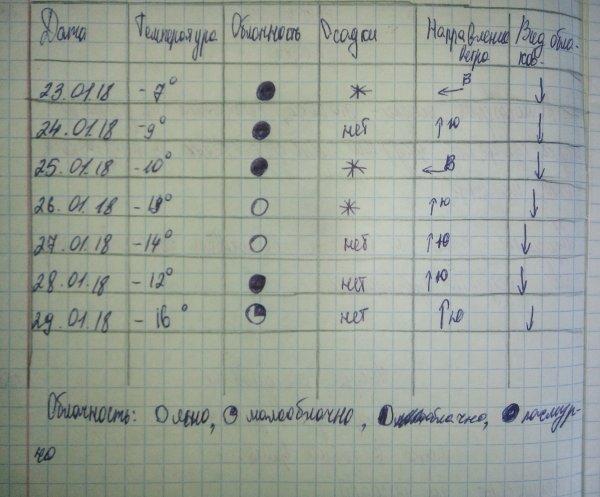 Дата Температура Облачность Осадки Направление Ветра Вид обла-ков.
23.01.18 -7° ● * ← В ↓
24.01.18 -9° ● нет ↑ Ю ↓
25.01.18 -10° ● * ← В ↓
26.01.18 ○ * ↑ Ю ↓
27.01.18 -14° ○ нет ↑ Ю ↓
28.01.18 -12° ● нет ↑ Ю ↓
29.01.18 -16° ◔ нет ↑ Ю ↓
Облачность: ○ ясно, ◔ малооблачно, облачно, ● пасмур-
но